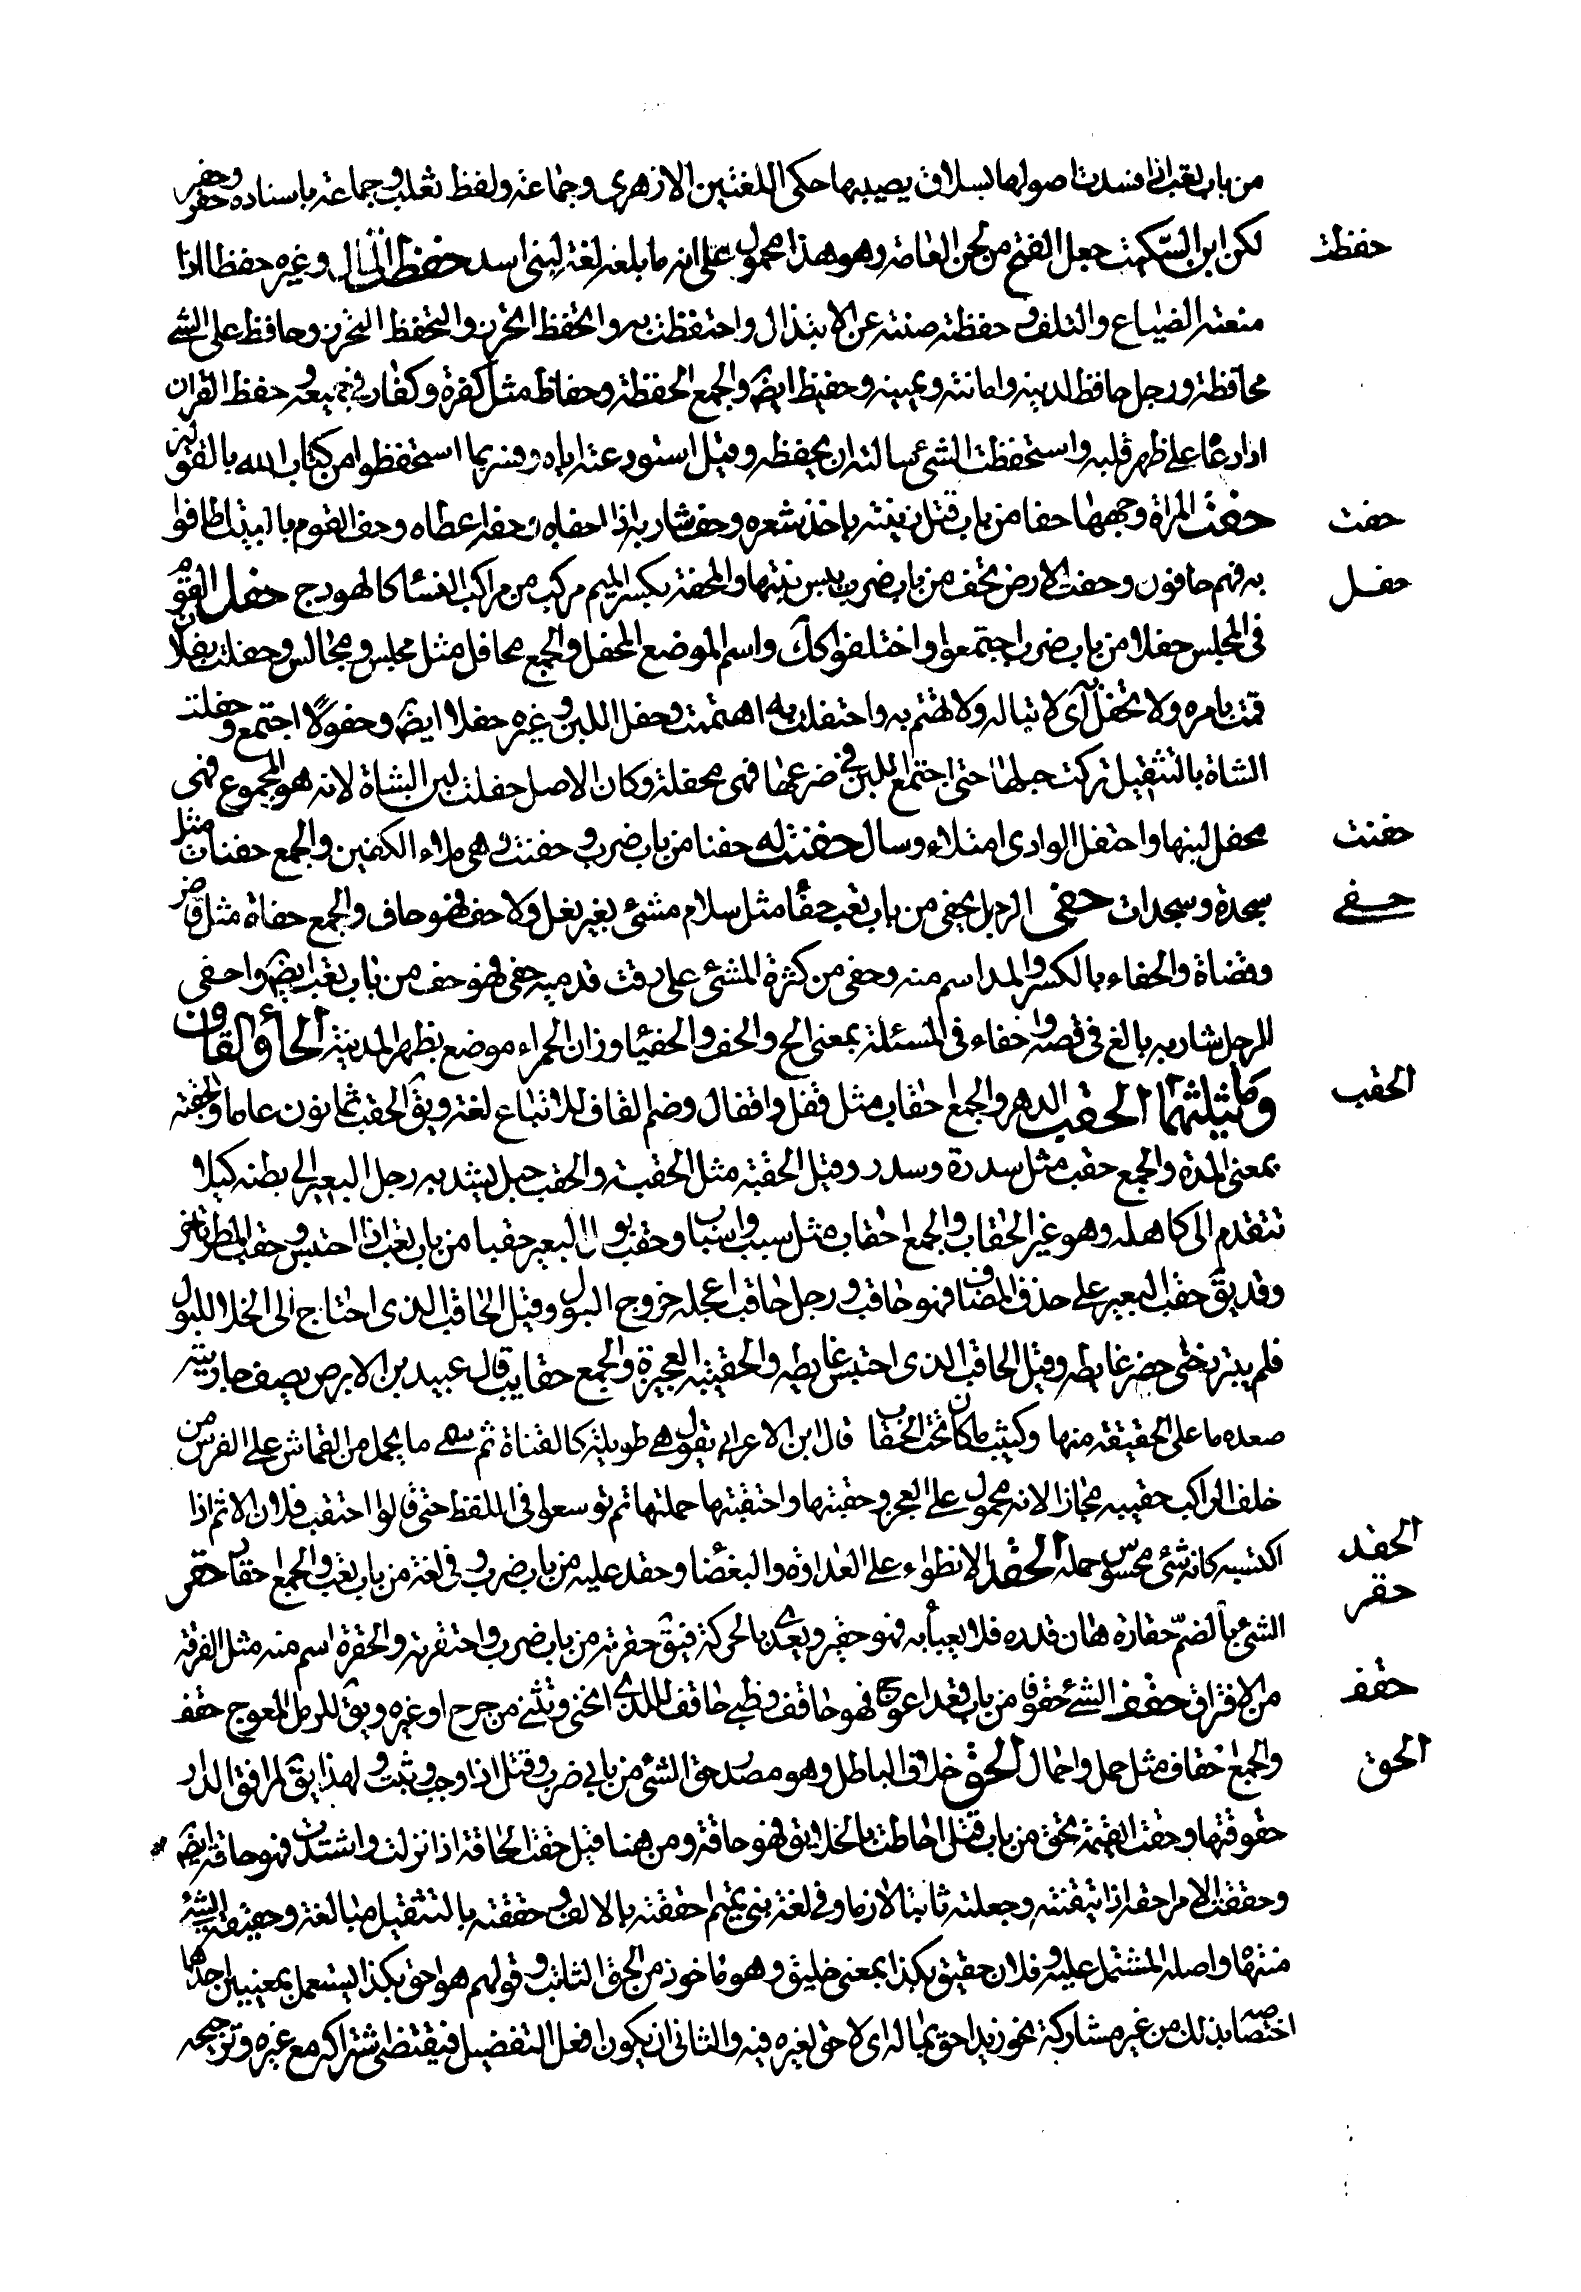 من باب تعب اذا فسدت اصولها بسلاق يصيبها حكى اللغتين الازهري وجماعة ولفظ ثعلب وجماعة باسناده حفر وحفر
حفظت
لكن ابن السكيت جعل الفتح من لحن العامة وهو هذا محمول على انه ما بلغه لغة لبنى اسد حفظ المال وغيره حفظا اذا
منعته الضياع والتلف و حفظته صنته عن الابتذال واحتفظت به والتحفظ التحرز والتحفظ التحرز وحافظ على الشئ
محافظة ورجل حافظ لدينه وامانته ويمينه وحفيظ ايضً والجمع الحفظة وحفاظ مثل كفرة وكفار في جميعه و حفظ القران
اذا وعاه على ظهر قلبه واستحفظت الشئ سالته ان يحفظه وقيل استودعته اياه وفسر بما استحفظوا من كتاب الله بالقولين
حفت
حفت المراة وجهها حفا من باب قتل زينته باخذ شعره وحف شاربه اذا احفاه وحفه اعطاه وحف القوم بالبيت اطافوا
حفل
به فهم حافون وحفت الارض تحف من باب ضرب يبس نبتها والمحفة بكسر الميم مركب من مراكب النسا كالهودج حفل القوم
فى المجلس حفلا من باب ضرب اجتمعوا واحتلفوا كك واسم الموضع المحفل والجمع محافل مثل مجلس ومجالس وحفلت بفلان
قمت بامره ولا تحفل به اى لا تباله ولا تهتم به واحتفلت به اهتممت وحفل اللبن وغيره حفلا ايضً وحفولا اجتمع و حفلت
الشاة بالتثقيل تركت حلبها حتى اجتمع اللبن في ضرعها فهى محفلة وكان الاصل حفلت لبن الشاة لانه هو المجموع فهى
حفنت
محفل لبنها واحتفل الوادى امتلاء وسال حفنت له حفنا من باب ضرب و حفنة و هى ملاء الكفين والجمع حفنات مثل
حفى
سجدة وسجدات حفى الرجل يحفى من باب تعب حفاً مثل سلام مشئ بغير نعل ولا خف فهو حاف والجمع حفاة مثل قاض
وقضاة والحفاء بالكسر والمد اسم منه وحفى من كثرة المشئ على رقت قدميه حفى فهو حف من باب تعب ايضً واحفى
الرجل شاربه بالغ فى قصه واحفاء فى المسئلة بمعنى الح والحف والحفيا وزان الحمراء موضع بظهر المدينة الحاء والقاف
الحقب
وما يثلثهما الحقب الدهر والجمع احقاب مثل قفل واقفال وضم القاف للاتباع لغة ويقً الحقب ثمانون عاما والحقبة
بمعنى المدة والجمع حقب مثل سدرة وسدر وقيل الحقبة مثل الحقب والحقب حبل يشد به رحل البعير الى بطنه كيلا
تتقدم الى كاهله وهو غير الحقاب والجمع احقاب مثل سبب واسباب وحقب بول البعير حقبا من باب تعب اذا احتبس وحقب المطر تاخر
وقد يقً حقب البعير على حذف المضاف فهو حاقب ورجل حاقب اعجله خروج البول وقيل الحاقب الذى احتاج الى الخلا للبول
فلم يتبرز حتى حضر غايطه وقيل الحاقب الذى احتبس غايطه والحقيبة العجيزة والجمع حقايب قال عبيد بن الابرص يصف جاريته
صعدة ما على الحقيقة منها وكثيب ما كان تحت الحقاب قال ابن الاعرابي يقول هى طويلة كالقناة ثم سمى ما يحمل من القماش على الفرس من
خلف الراكب حقيبه مجازا لانه محمول على العجز وحقبتها واحتقبتها حملتها ثم توسعوا فى اللفظ حتى قالوا احتقب فلان الاثم اذا
الحقد
اكتسبه كانه شئ محسوس حمله الحقد الانطواء على العداوة والبغضا وحقد عليه من باب ضرب و فى لغة من باب تعب والجمع احقاد حقر
حقر
الشئ بالضم حقارة هان قدره فلا يعبأ به فهو حقير ويعدى بالحركة فيقً حقرته من باب ضرب واحتقرته والحقرة اسم منه مثل الفرقة
حقف
من الافتراق حقف الشئ حقوفا من باب قعد اعوج فهو حاقف وظبى حاقف للذى انحنى وتثنى من جرح او غيره ويقً للرمل المعوج حقف
الحق
والجمع احقاف مثل حمل واحمال الحق خلاف الباطل وهو مصدر حق الشئ من بابي ضرب وقتل اذا وجب و ثبت و لهذا يقً لمرافق الدار
حقوقها وحقت القيمة تحق من باب قتل احاطت بالخلايق فهو حاقة ومن هنا قيل حقت الحاقة اذا نزلت واشتدت فهو حاقة ايضً
وحققت الامر احقه اذا تيقنته وجعلته ثابتا لازما وفى لغة بنى تميم احققته بالالف وحققته بالتثقيل مبالغة وحقيقة الشئ
منتهاه واصله المشتمل عليه و فلان حقيق بكذا بمعنى خليق وهو ماخوذ من الحق الثابت و قولهم هو احق بكذا يستعمل بمعنيين احدهما
اختصاصه بذلك من غير مشاركة نحو زيد احق بماله اى لا حق لغيره فيه والثانى ان يكون افعل التفضيل فيقتضى اشتراكه مع غيره وترجيحه